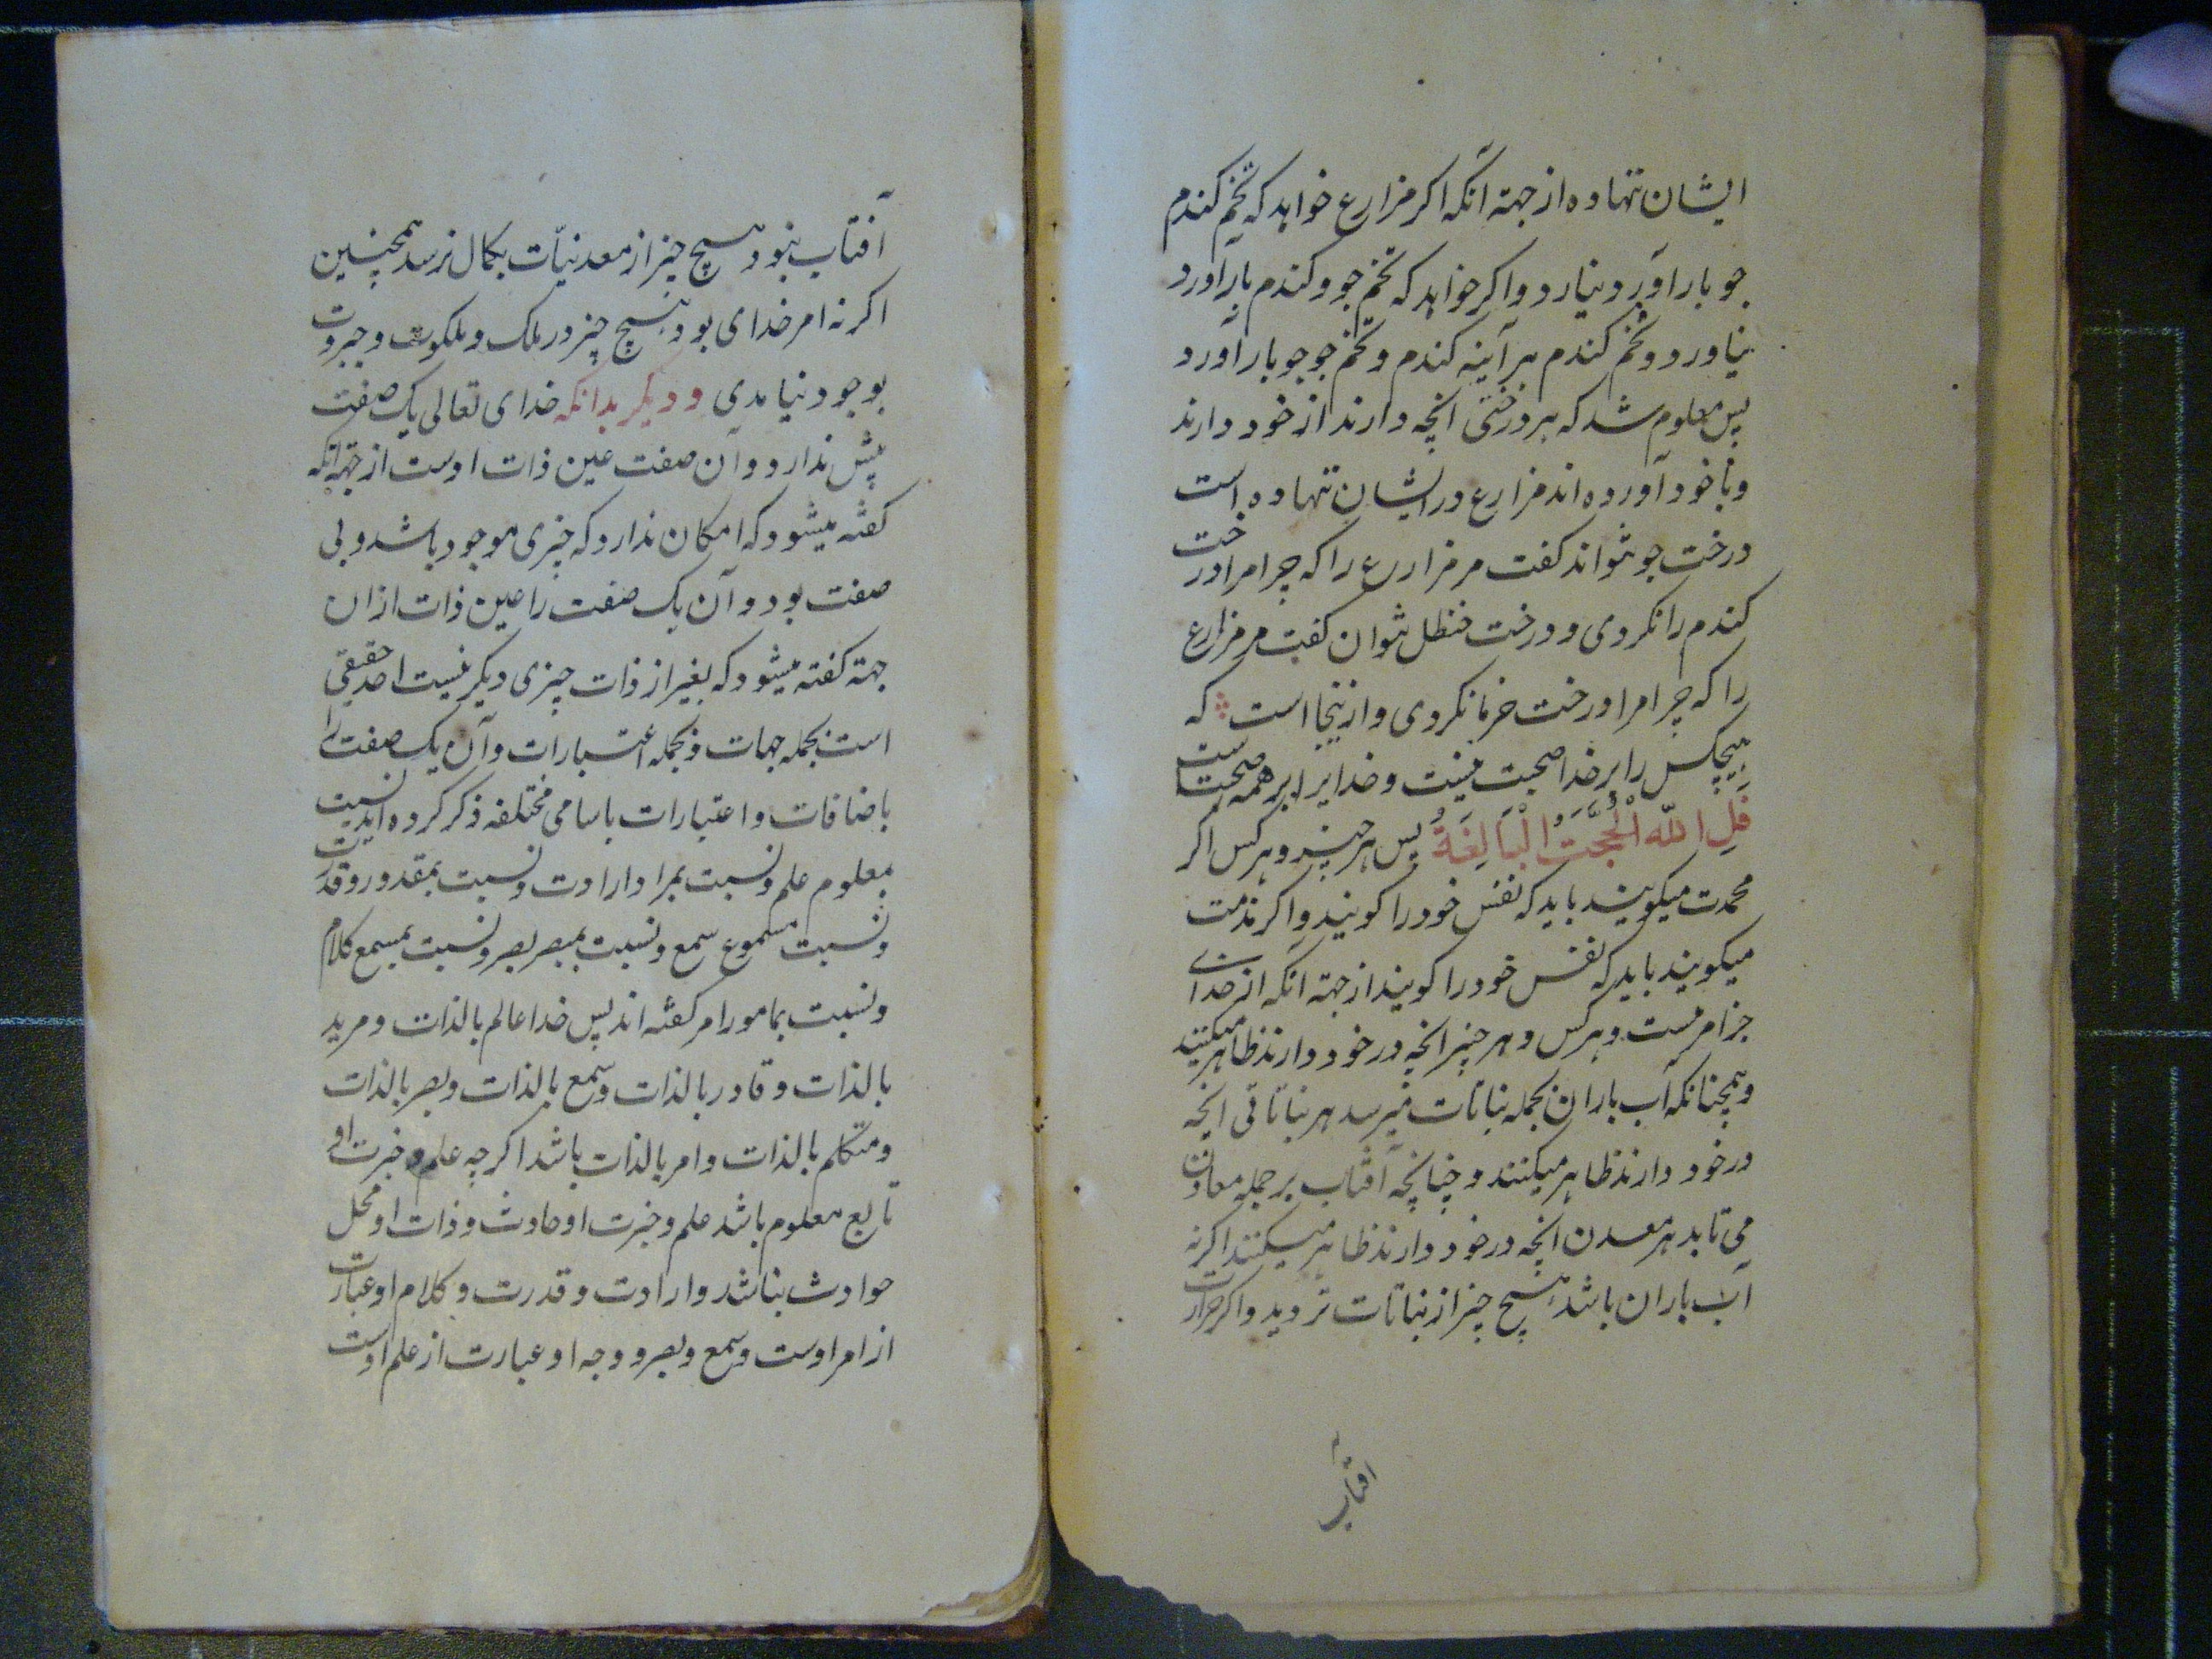 ایشان ننهاده از جهته آنکه اکر مزارع خواهد که تخم کندم
جو بار آورد نیارد و اکر خواهد که تخم جو و کندم بار آورد
نیاورد و تخم کندم هر آینه کندم و تخم جو جو بار آورد
پس معلوم شد که هر درختی انچه دارند از خود دارند
و با خود آورده اند مزارع در ایشان ننهاده است
درخت جو نتواند کفت مر مزارع را که چرا مرا درخت
کندم را نکردی و درخت حنظل نتوان کفت مر مزارع
را که چرا مرا درخت خرما نکردی و ازینجا است که
هیچکس را بر خدا حجت نیست و خدایرا بر همه حجت است
قل الله الحجت البالغة پس هر چیز و هر کس اکر
محمدت میکویند باید که نفس خود را کویند و اکر مذمت
میکویند باید که نفس خود را کویند از جهته آنکه از خدای
جز امر نیست و هر کس و هر چیز انچه در خود دارند ظاهر میکنند
و همچنانکه آب باران بجمله نباتات میرسد هر نباتاتی انچه
در خود دارند ظاهر میکنند و چنانچه آفتاب بر جمله معادن
می تابد هر معدن انچه در خود دارند ظاهر میکنند اکر نه
آب باران باشد هیچ چیز از نباتات نروید و اکر حرارت
آفتاب
آفتاب نبود هیچ چیز از معدنیّات بکمال نرسد همچنین
اکر نه امر خدای بود هیچ چیز در ملک و ملکوت و جبروت
بوجود نیامدی و دیکر بدانکه خدای تعالی یک صفت
بیش ندارد و آن صفت عین ذات اوست از جهته آنکه
کفته میشود که امکان ندارد که چیزی موجود باشد و بی
صفت بود و آن یک صفت را عین ذات از ان
جهته کفته میشود که بغیر از ذات چیزی دیکر نیست احد حقیقی
است بجمله جهات و بجمله اعتبارات و آن یک صفت را
باضافات و اعتبارات باسامی مختلفه ذکر کرده اند نسبت
بمعلوم علم و نسبت بمراد ارادت و نسبت بمقدور و قدرت
و نسبت مسموع سمع و نسبت بمبصر بصر و نسبت بمسمع کلام
و نسبت بمامور امر کفته اند پس خدا عالم بالذات و مرید
بالذات و قادر بالذات و سمع بالذات و بصر بالذات
و متکلم بالذات و امر بالذات باشد اکرچه علم و خبرت او
تابع معلوم باشد علم و خبرت او حادث و ذات او محل
حوادث نباشد و ارادت و قدرت و کلام او عبارت
از امر اوست و سمع و بصر و وجه او عبارت از علم اوست